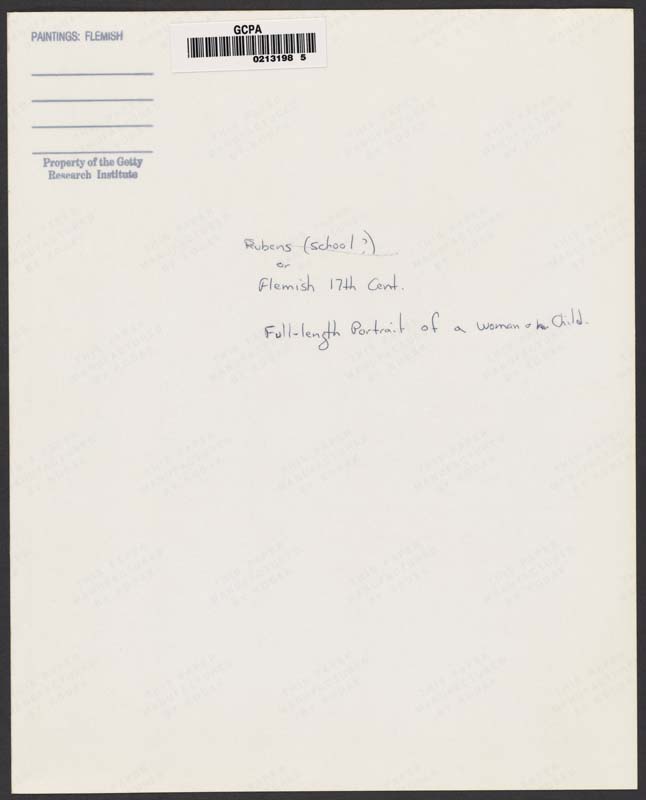 PAINTINGS: FLEMISH
GCPA
0213198 5
Property of the Getty
Research Institute
Rubens (school?)
or
Flemish 17th Cent.
Full-length Portrait of a Woman & her Child.
THIS PAPER
MANUFACTURED
BY KODAK